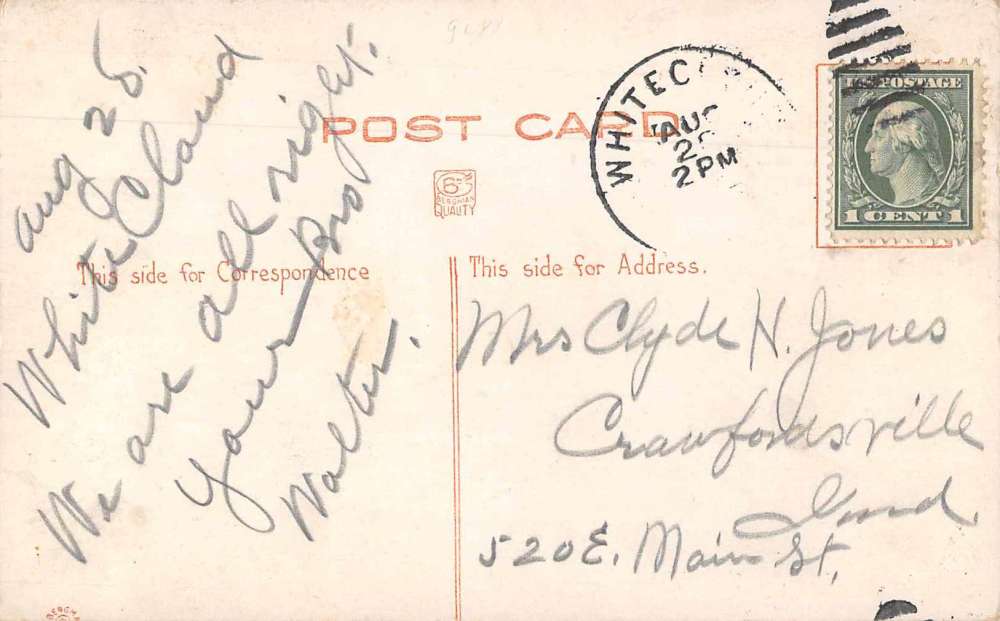 9688
POST CARD
WHITEC
AUG
2
2 PM
U.S. POSTAGE
1 CENT 1
6
BERGHMAN
QUALITY
This side for Correspondence
This side for Address.
Aug 28.
White Cloud
We are all right.
Your Bro
Walter.
Mrs Clyde H. Jones
Crawfordsville
Ind.
520 E. Main St.